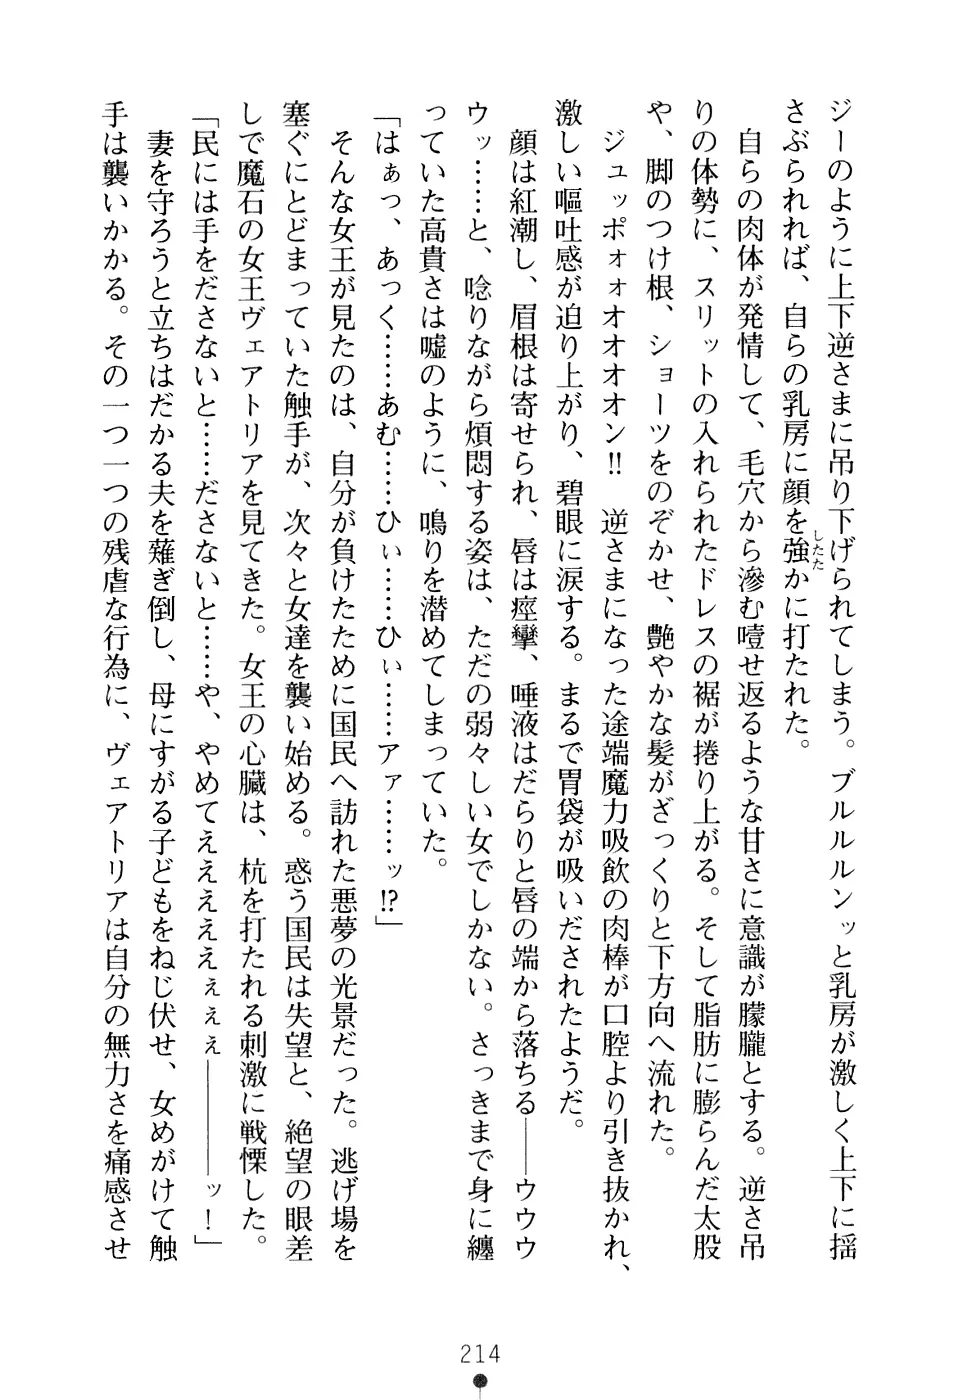 ジーのように上下逆さまに吊り下げられてしまう。ブルルルンッと乳房が激しく上下に揺
さぶられれば、自らの乳房に顔を強かに打たれた。
したた
　自らの肉体が発情して、毛穴から滲む噎せ返るような甘さに意識が朦朧とする。逆さ吊
りの体勢に、スリットの入れられたドレスの裾が捲り上がる。そして脂肪に膨らんだ太股
や、脚のつけ根、ショーツをのぞかせ、艶やかな髪がざっくりと下方向へ流れた。
　ジュッポォォオオオオン!!　逆さまになった途端魔力吸飲の肉棒が口腔より引き抜かれ、
激しい嘔吐感が迫り上がり、碧眼に涙する。まるで胃袋が吸いだされたようだ。
　顔は紅潮し、眉根は寄せられ、唇は痙攣、唾液はだらりと唇の端から落ちる――ウウウ
ウッ……と、唸りながら煩悶する姿は、ただの弱々しい女でしかない。さっきまで身に纏
っていた高貴さは嘘のように、鳴りを潜めてしまっていた。
「はぁっ、あっく……あむ……ひぃ……ひぃ……アァ……ッ!?」
　そんな女王が見たのは、自分が負けたために国民へ訪れた悪夢の光景だった。逃げ場を
塞ぐにとどまっていた触手が、次々と女達を襲い始める。惑う国民は失望と、絶望の眼差
しで魔石の女王ヴェアトリアを見てきた。女王の心臓は、杭を打たれる刺激に戦慄した。
「民には手をださないと……ださないと……や、やめてえええええぇぇぇ――――ッ！」
　妻を守ろうと立ちはだかる夫を薙ぎ倒し、母にすがる子どもをねじ伏せ、女めがけて触
手は襲いかかる。その一つ一つの残虐な行為に、ヴェアトリアは自分の無力さを痛感させ
214